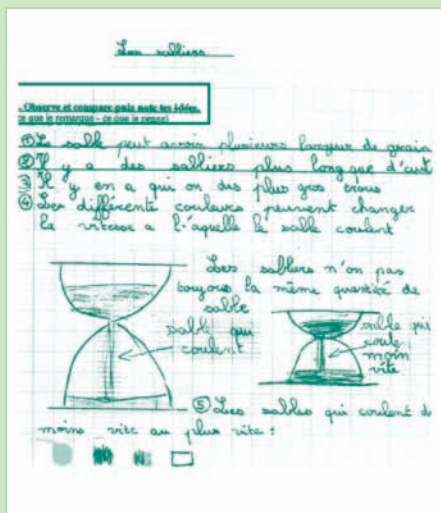 Les sabliers
. Observe et compare puis note tes idées.
ce que je remarque - ce que je pense)
① Le sable peut avoir plusieurs largeur de grain
② Il y a des sabliers plus long que d'
③ Il y en a qui on des plus gros trous
④ Les différente couleurs peuvent changer
la vitesse a l'aquelle le sable coulent
Les sabliers n'on pas
toujors la même quantité de
sable
sable qui
coulent
sable qui
coule
moin
vite
⑤ Les sables qui coulent d
moins vite au plus vite :